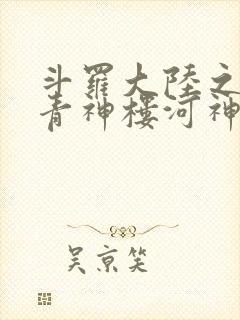 斗羅大陸之
青神樓河神
吴京笑